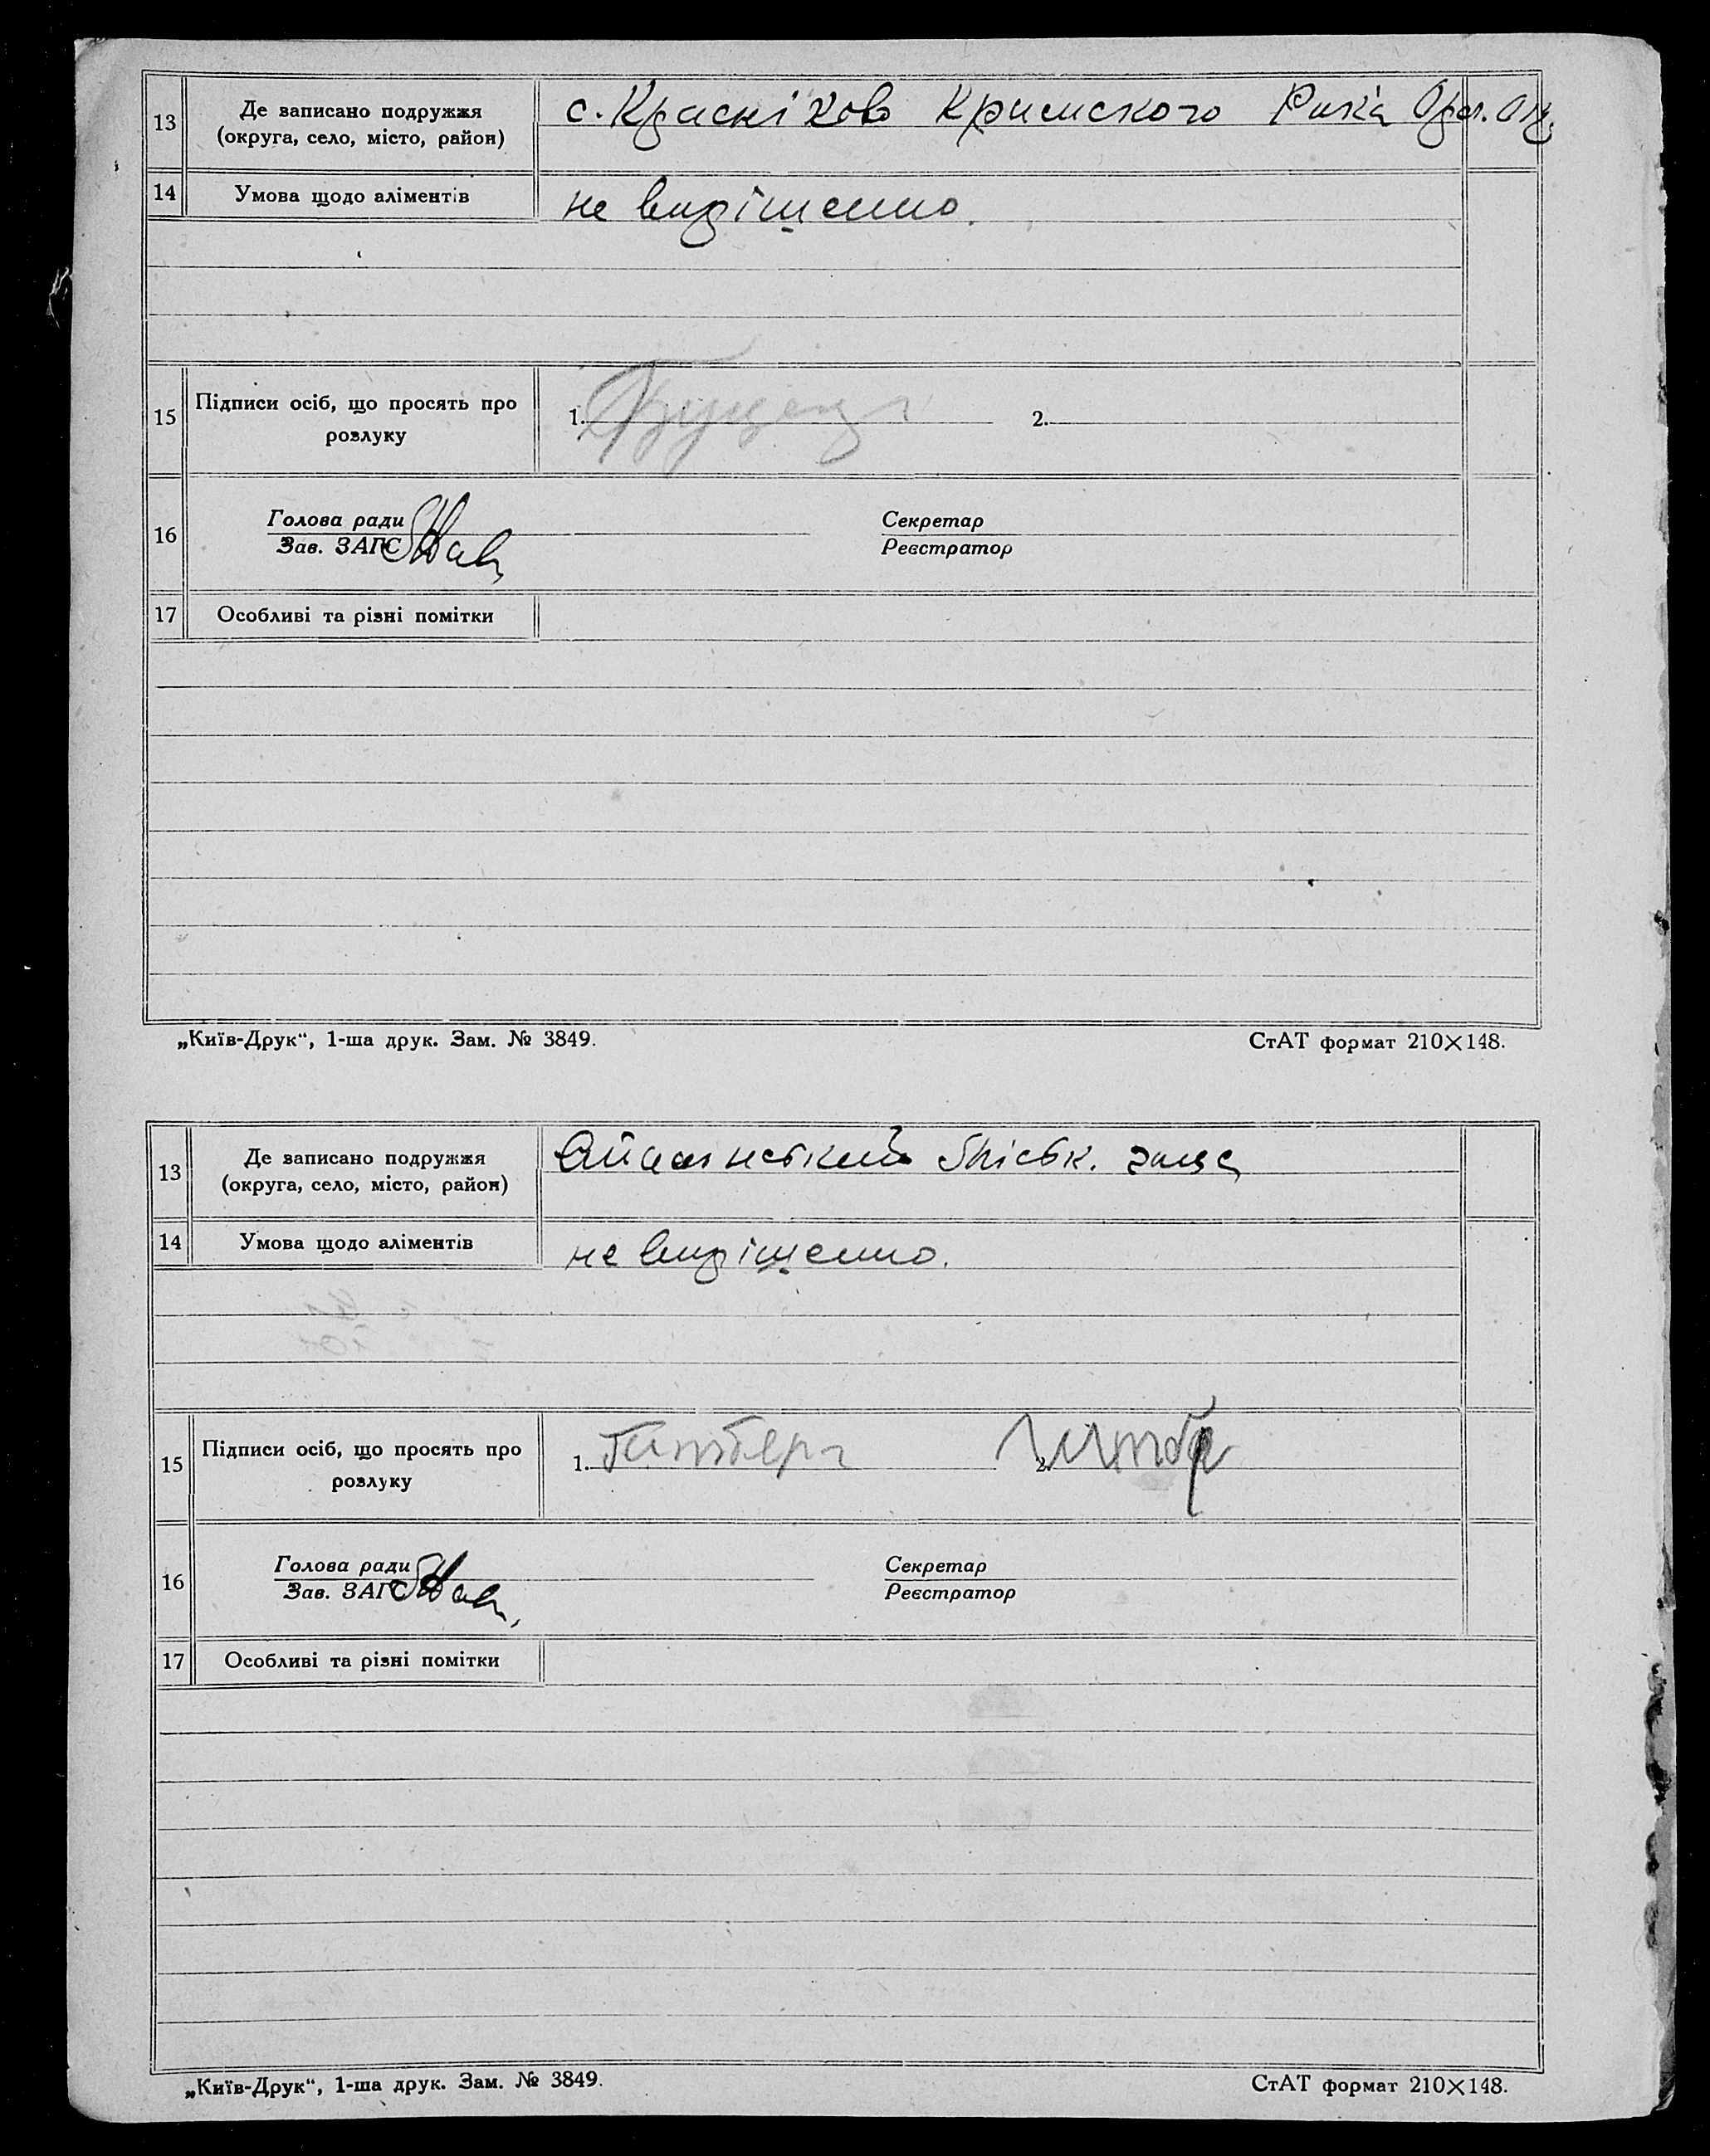 13 Де записано подружжя с. Красніково Кримского
(округа, село, місто, район)
14 Умова щодо аліментів не вирішенно.
15 Підписи осіб, що просять про 1. 2.
розлуку
Голова ради Секретар
16
Зав. ЗАГС Реєстратор
17 Особливі та різні помітки
„Київ-Друк“, 1-ша друк. Зам. № 3849. СтАТ формат 210×148.
13 Де записано подружжя міськ. загс
(округа, село, місто, район)
14 Умова щодо аліментів не вирішенно.
15 Підписи осіб, що просять про 1. 2.
розлуку
Голова ради Секретар
16
Зав. ЗАГС Реєстратор
17 Особливі та різні помітки
„Київ-Друк“, 1-ша друк. Зам. № 3849. СтАТ формат 210×148.